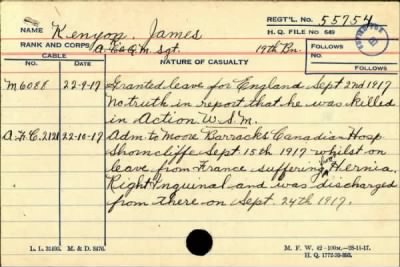 NAME Kenyon, James REGT'L. No. 55754
H. Q. FILE No. 649
RANK AND CORPS A/C.Q.M. Sgt. 19th Bn. FOLLOWS
CABLE NATURE OF CASUALTY FOLLOWS
No. DATE No.
M6088 22-9-17 Granted leave for England Sept 2nd 1917
No truth in report that he was killed
in Action W.S.M.
A.F.C. 2121 22-10-17 Adm to Moore Barracks Canadian Hosp
Shorncliffe Sept. 15th 1917 whilst on
leave from France suffering from Hernia,
Right Inguinal and was discharged
from there on Sept. 24th 1917.
L. L. M. & D. 8476. M. F. W. 42-100M.-28-11-17.
H. Q. 1772-39-893.